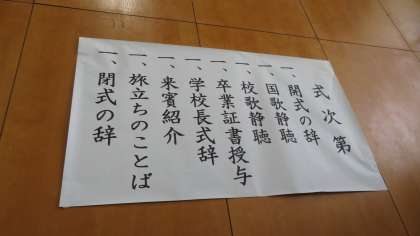 式次第
一、開式の辞
一、国歌静聴
一、校歌静聴
一、卒業証書授与
一、学校長式辞
一、来賓紹介
一、旅立ちのことば
一、閉式の辞